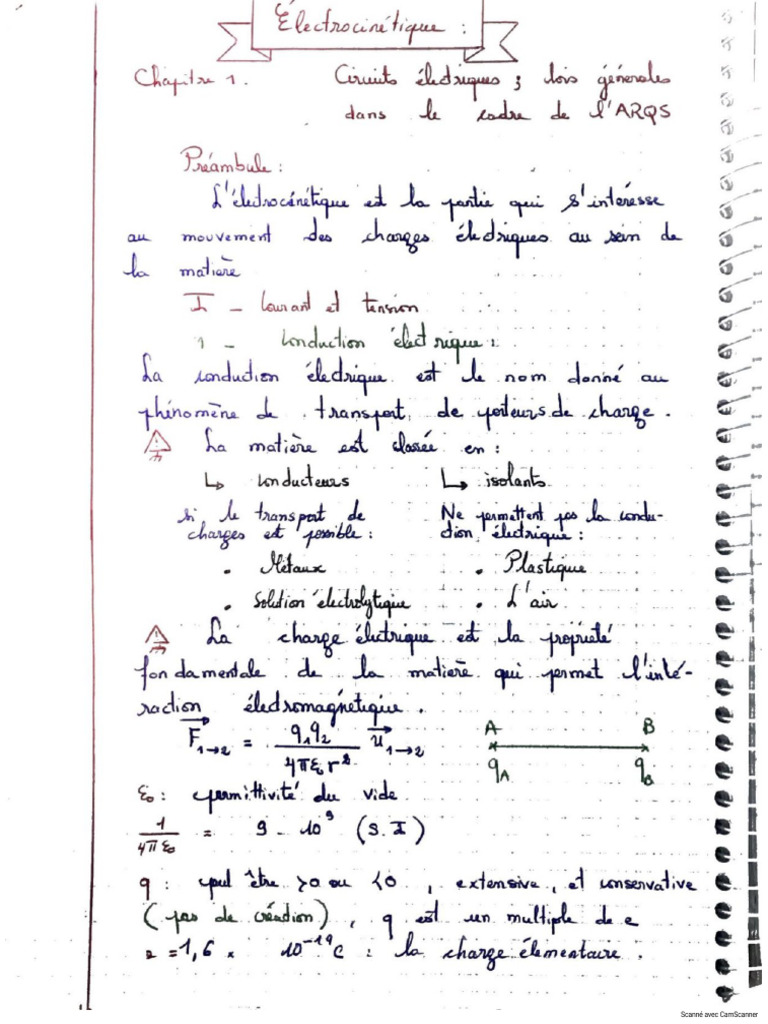 Électrocinétique :
Chapitre 1. Circuits électriques ; lois générales
dans le cadre de l'ARQS
Préambule :
L'électrocinétique est la partie qui s'intéresse
au mouvement des charges électriques au sein de
la matière
I - Courant et tension
1 - Conduction électrique :
La conduction électrique est le nom donné au
phénomène de transport de porteurs de charge.
⚠ La matière est classée en :
↳ conducteurs ↳ isolants
si le transport de Ne permettent pas la condu-
charges est possible : ction électrique :
• Métaux • Plastique
• Solution électrolytique • L'air
⚠ La charge électrique est la propriété
fondamentale de la matière qui permet l'inté-
raction électromagnétique.
F⃗₁→₂ = q₁q₂ / 4πε₀r² u⃗₁→₂ A B
qA qB
ε₀ : permittivité du vide
1 / 4πε₀ = 9 - 10⁹ (S.I)
q : peut être >0 ou <0, extensive, et conservative
(pas de création), q est un multiple de e
e = 1,6 × 10⁻¹⁹C : la charge élementaire.
Scanné avec CamScanner